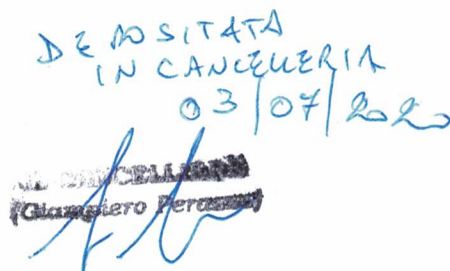 DEPOSITATA
IN CANCELLERIA
03/07/2020
IL CANCELLIERE
(Giampiero